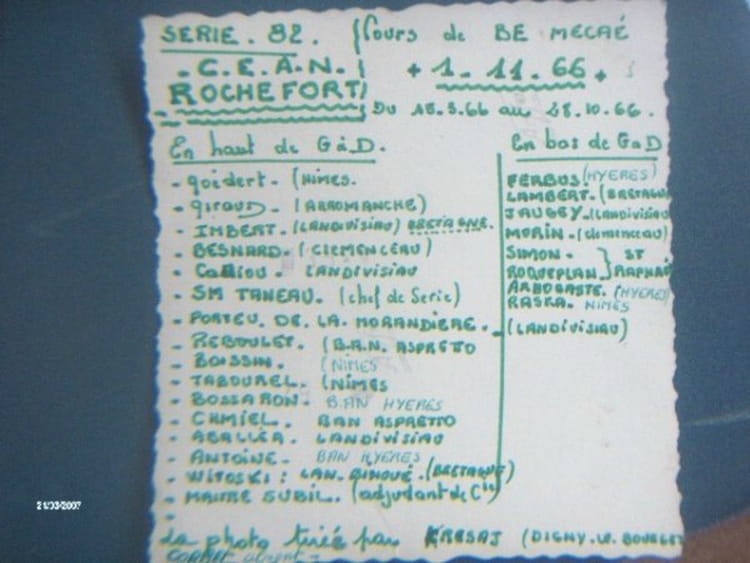 SERIE. 82. Cours de BE MECAÉ
- C.E.A.N. + 1. 11. 66 +
ROCHEFORT
Du 18.3.66 au 28.10.66.
En haut de G à D.
- goedert - (NIMES.
- giraud - (ARROMANCHE)
- IMBERT. (LANDIVISIAU) BRETAGNE.
- BESNARD. (CLEMENCEAU)
- LANDIVISIAU
- SM TANEAU. (chef de Serie)
- PORTEU. DE. LA. MORANDIERE. - (LANDIVISIAU)
- REBOULET. (B.A.N. ASPRETO
- BOISSIN. (NIMES
- TABOUREL. (NIMES
- BOSSARON. B.AN HYERES
- CHMIEL. BAN ASPRETTO
- LANDIVISIAU
- ANTOINE. BAN HYERES
- WITOSKI: LAN. BIHOUÉ. (BRETAGNE)
- MAITRE SUBIL. (adjudant de Cie)
-
En bas de G a D
FERBUS. (HYERES)
LAMBERT. (BRETAGNE
JAUGEY. (LANDIVISIAU
MORIN. (clemenceau)
SIMON. } ST
ROQUEPLAN. } RAPHAE
ARBOGASTE. (HYERES)
RASKA. NIMES
La photo tirée par KRESAJ (DIGNY. LE. BOURGET
21/03/2007